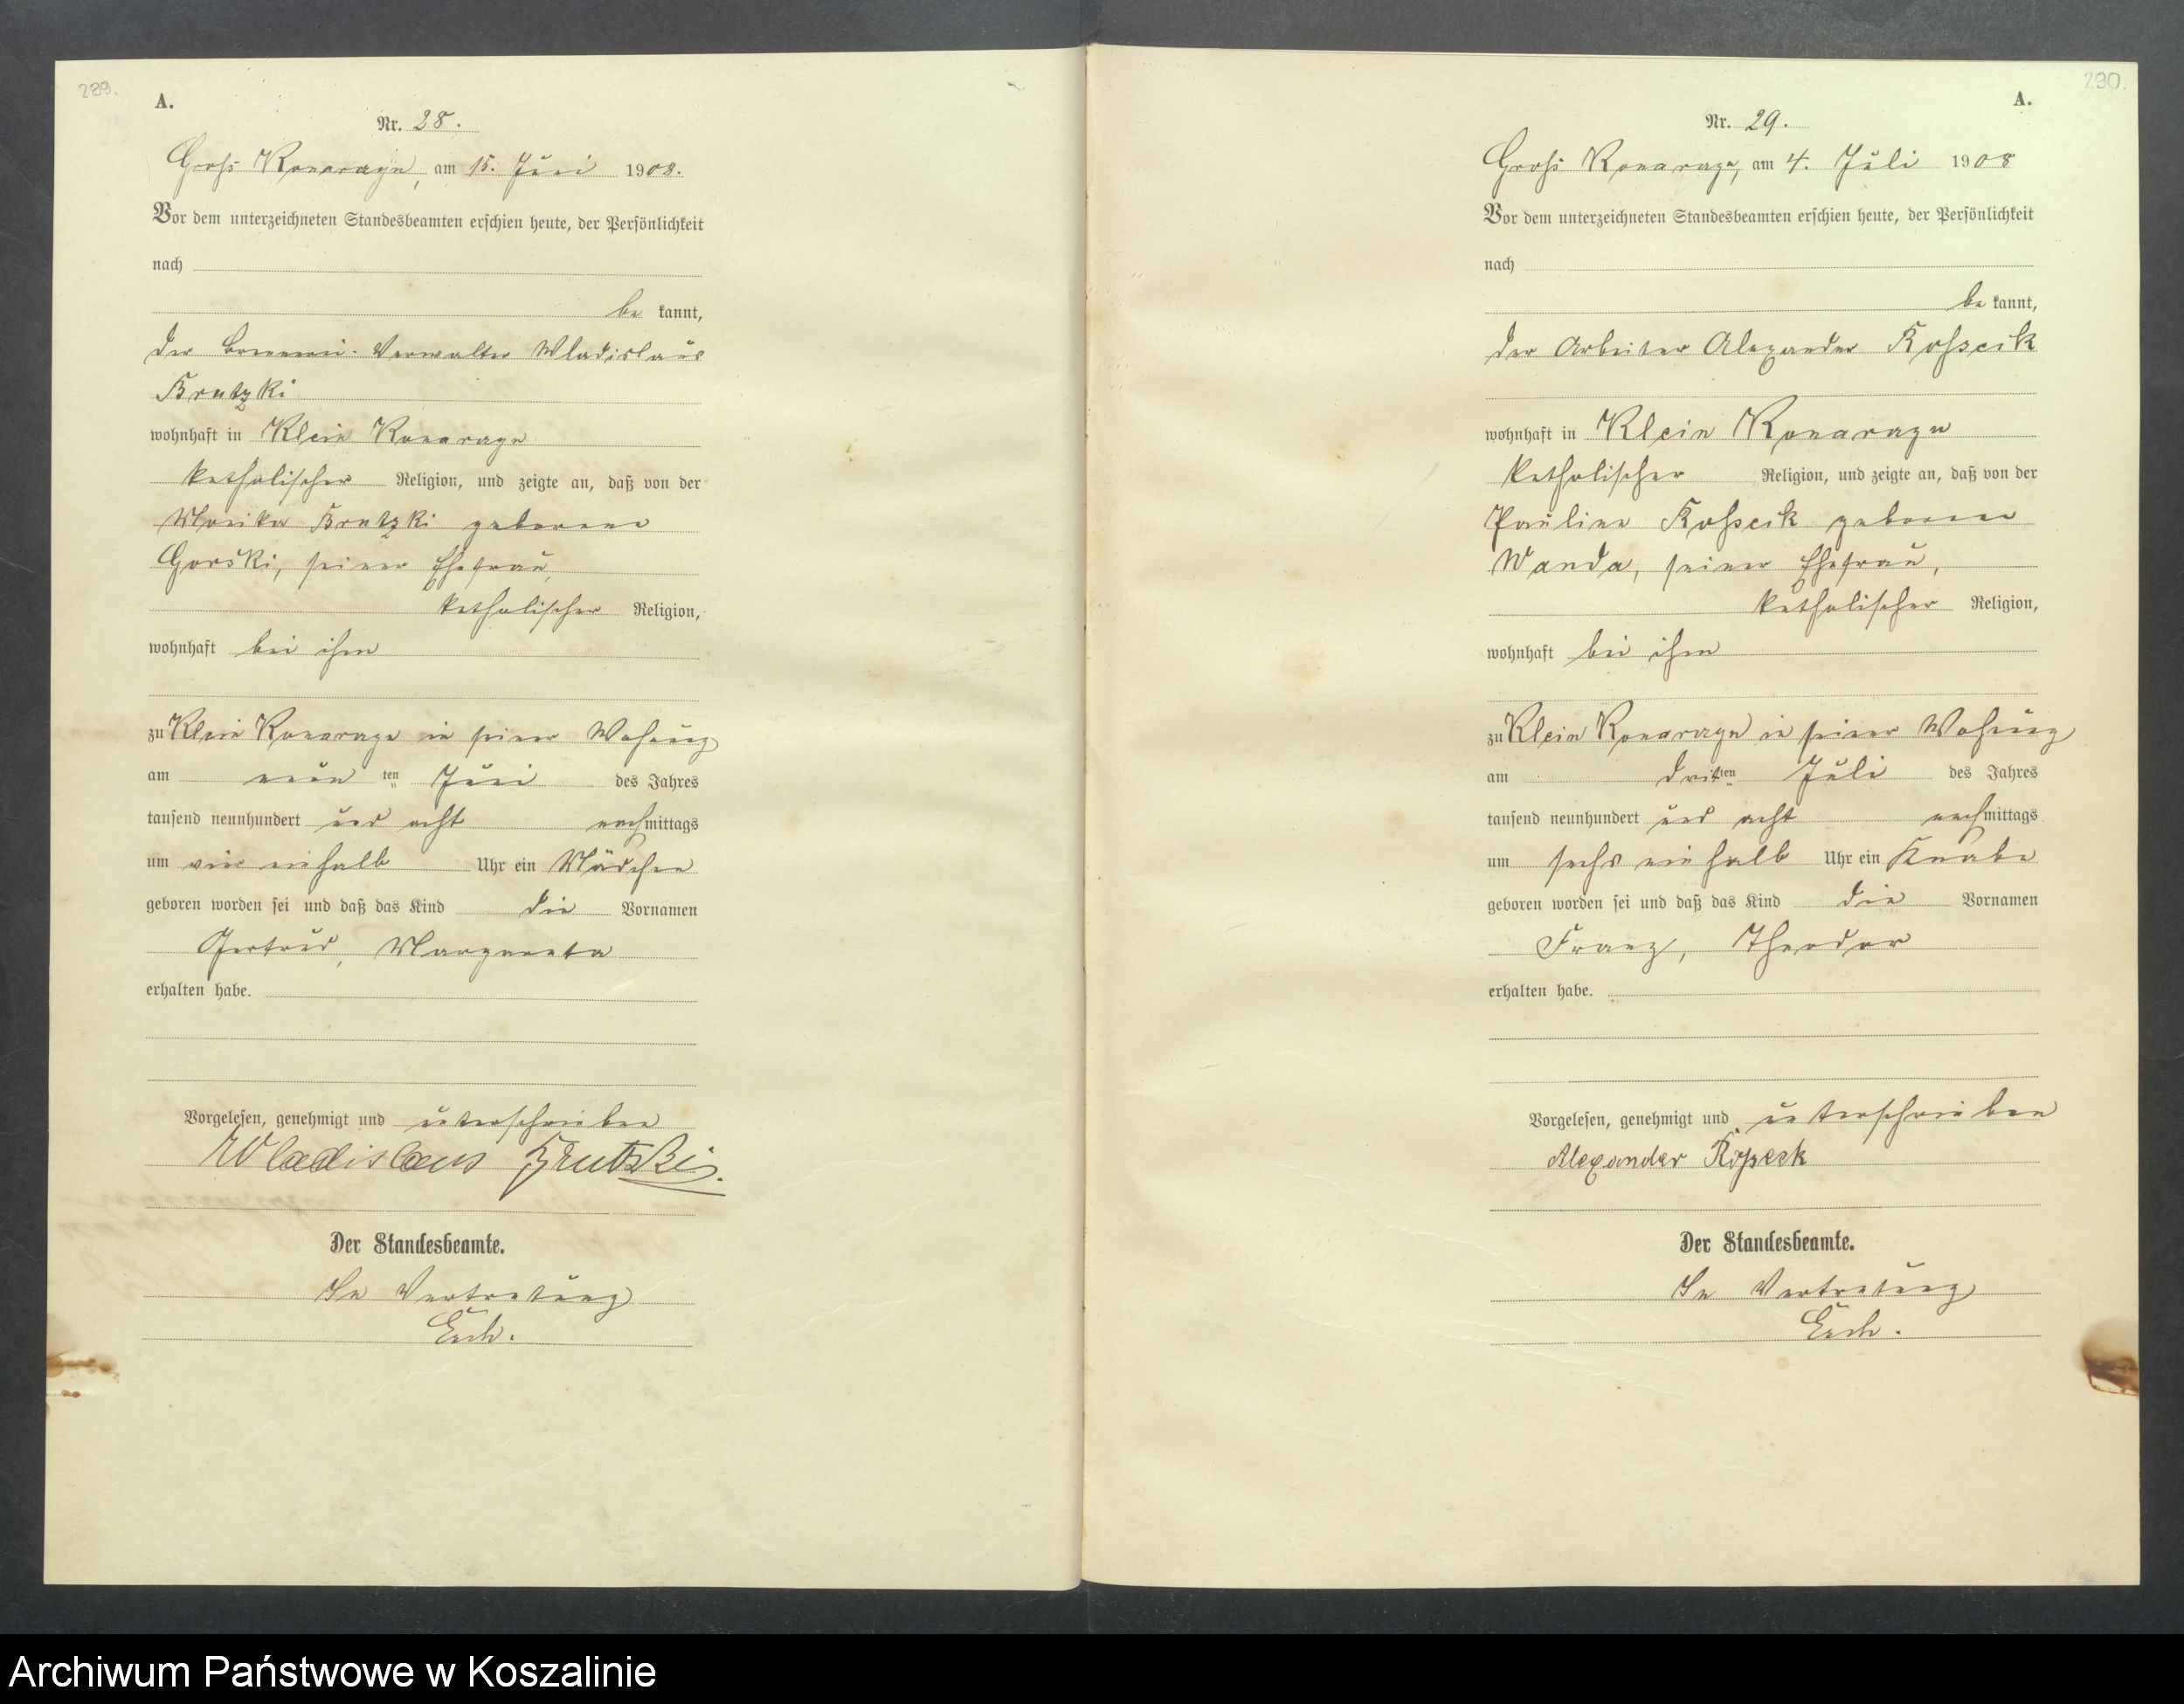 289.
A.
Nr. 28.
Groß Konarzyn, am 15. Juni 1908.
Vor dem unterzeichneten Standesbeamten erschien heute, der Persönlichkeit
nach
be kannt,
der Brennerei-Verwalter Wladislaus
Brutzki
wohnhaft in Klein Konarzyn
katholischer Religion, und zeigte an, daß von der
Monika Brutzki geborene
Gorski, seiner Ehefrau,
katholischer Religion,
wohnhaft bei ihm
zu Klein Konarzyn in seiner Wohnung
am neun ten Juni des Jahres
tausend neunhundert und acht nachmittags
um vier einhalb Uhr ein Mädchen
geboren worden sei und daß das Kind die Vornamen
Gertrud, Margareta
erhalten habe.
Vorgelesen, genehmigt und unterschrieben
Wladislaus Brutzki.
Der Standesbeamte.
In Vertretung
290.
A.
Nr. 29.
Groß Konarzyn, am 4. Juli 1908
Vor dem unterzeichneten Standesbeamten erschien heute, der Persönlichkeit
nach
be kannt,
der Arbeiter Alexander
wohnhaft in Klein Konarzyn
katholischer Religion, und zeigte an, daß von der
Pauline geborene
Wanda, seiner Ehefrau,
katholischer Religion,
wohnhaft bei ihm
zu Klein Konarzyn in seiner Wohnung
am dritten Juli des Jahres
tausend neunhundert und acht nachmittags
um sechs ein halb Uhr ein Knabe
geboren worden sei und daß das Kind die Vornamen
Franz, Theodor
erhalten habe.
Vorgelesen, genehmigt und unterschrieben
Alexander
Der Standesbeamte.
In Vertretung
Archiwum Państwowe w Koszalinie